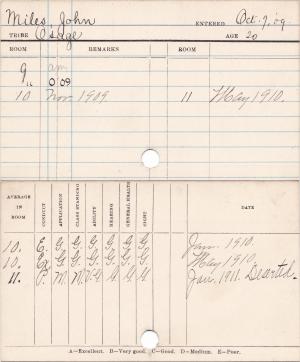 Miles, John ENTERED Oct. 7, '09
TRIBE Osage AGE 20
ROOM REMARKS ROOM
9 am
" 0'09
10 Nov 1909. 11 May 1910.
AVERAGE IN ROOM CONDUCT APPLICATION CLASS STANDING ABILITY HEARING GENERAL HEALTH SIGHT DATE
10. E. G. G. G. G. G. G. Jan. 1910.
10. G. G. G. G. G. G. May 1910.
11. P. M. M. G. G. G. Jan. 1911. Deserted.
A—Excellent. B—Very good. C—Good. D—Medium. E—Poor.